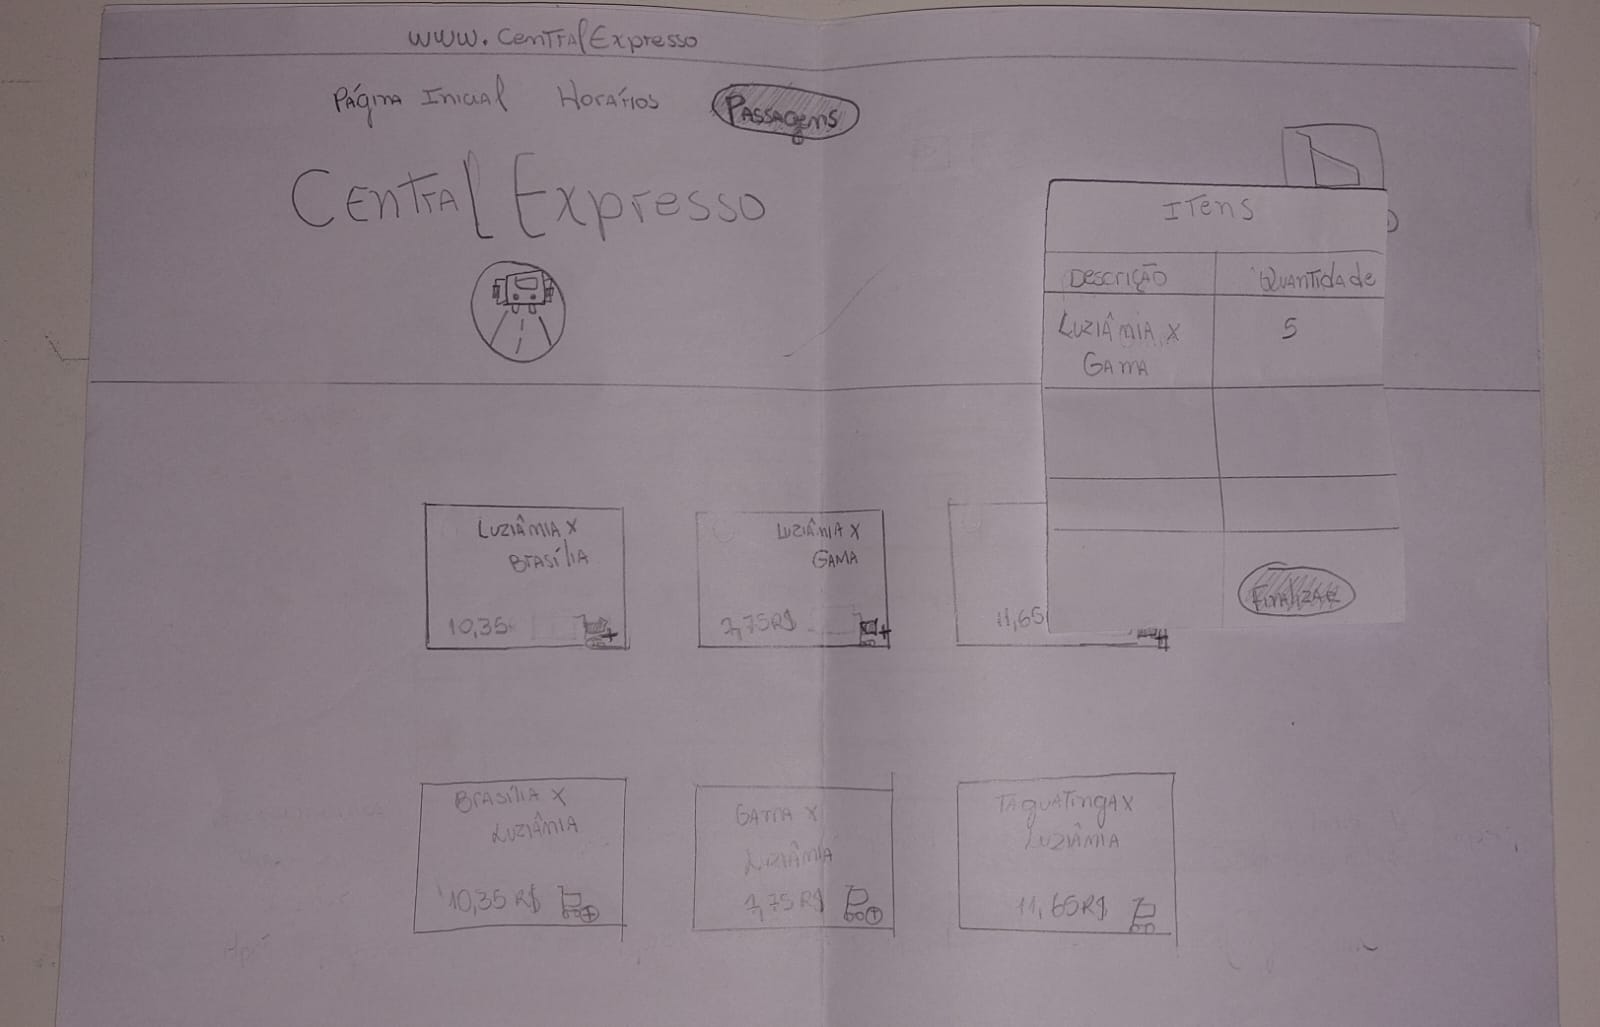 www.CentralExpresso
Página Inicial Horários Passagens
Central Expresso
Itens
Descrição Quantidade
Luziânia x 5
Gama
Finalizar
Luziânia x
Brasília
10,35
Luziânia x
Gama
7,75R$
11,65
Brasília x
Luziânia
10,35 R$
Gama x
Luziânia
7,75 R$
Taguatinga x
Luziânia
11,65R$